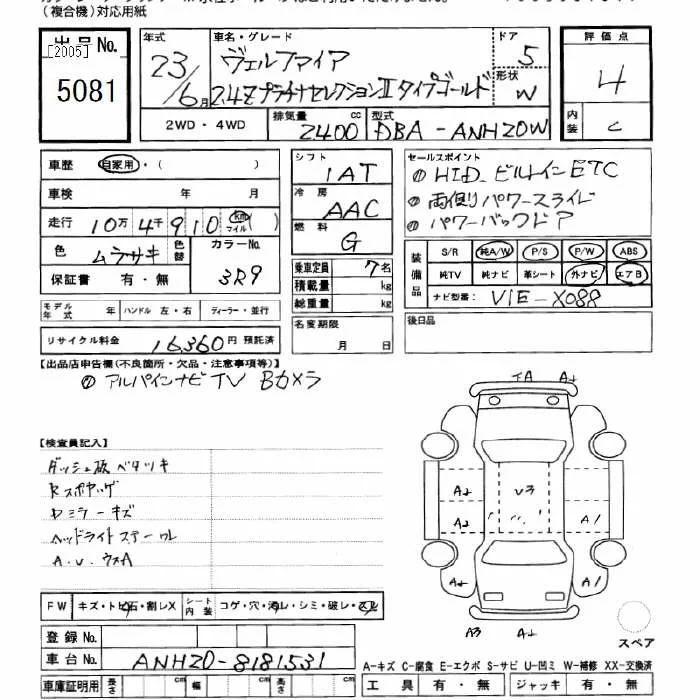 (複合機)対応用紙
出品No.
[2005]
5081
年式 車名・グレード ドア 評価点
23/6月 ヴェルファイア 5 4
2.4Z プラチナセレクションⅡ タイプゴールド 形状 W
2WD・4WD 排気量 2400 cc 型式 DBA-ANH20W 内装 C
車歴 自家用・( )
車検 年 月
走行 10万4千910 km マイル( )
色 ムラサキ 色替 カラーNo. 3R9
保証書 有・無
モデル年式 年 ハンドル 左・右 ディーラー・並行
リサイクル料金 16,360円 預託済
シフト IAT
冷房 AAC
燃料 G
乗車定員 7名
積載量 kg
総重量 kg
名変期限 月 日
セールスポイント
① HID ビルトインETC
② 両側パワースライド
③ パワーバックドア
装備品 S/R 純A/W P/S P/W ABS
純TV 純ナビ 革シート 外ナビ エアB
ナビ型番: VIE-X088
後日品
【出品店申告欄(不良箇所・欠品・注意事項等)】
① アルパインナビTV Bカメラ
【検査員記入】
ダッシュ板ベタツキ
Rスポヤッゲ
Dミラーキズ
ヘッドライトステーワレ
A.U.ウスA
FW キズ・トビ石・割レX シート内装 コゲ・穴・汚レ・シミ・破レ・スレ
登録No.
車台No. ANH20-8181531
車庫証明用 長さ cm 幅 cm 高さ cm
A A2
A2 V3
A2 A1
A2 A1
A3 A2
スペア
A-キズ C-腐食 E-エクボ S-サビ U-凹ミ W-補修 XX-交換済
工具 有・無 ジャッキ 有・無